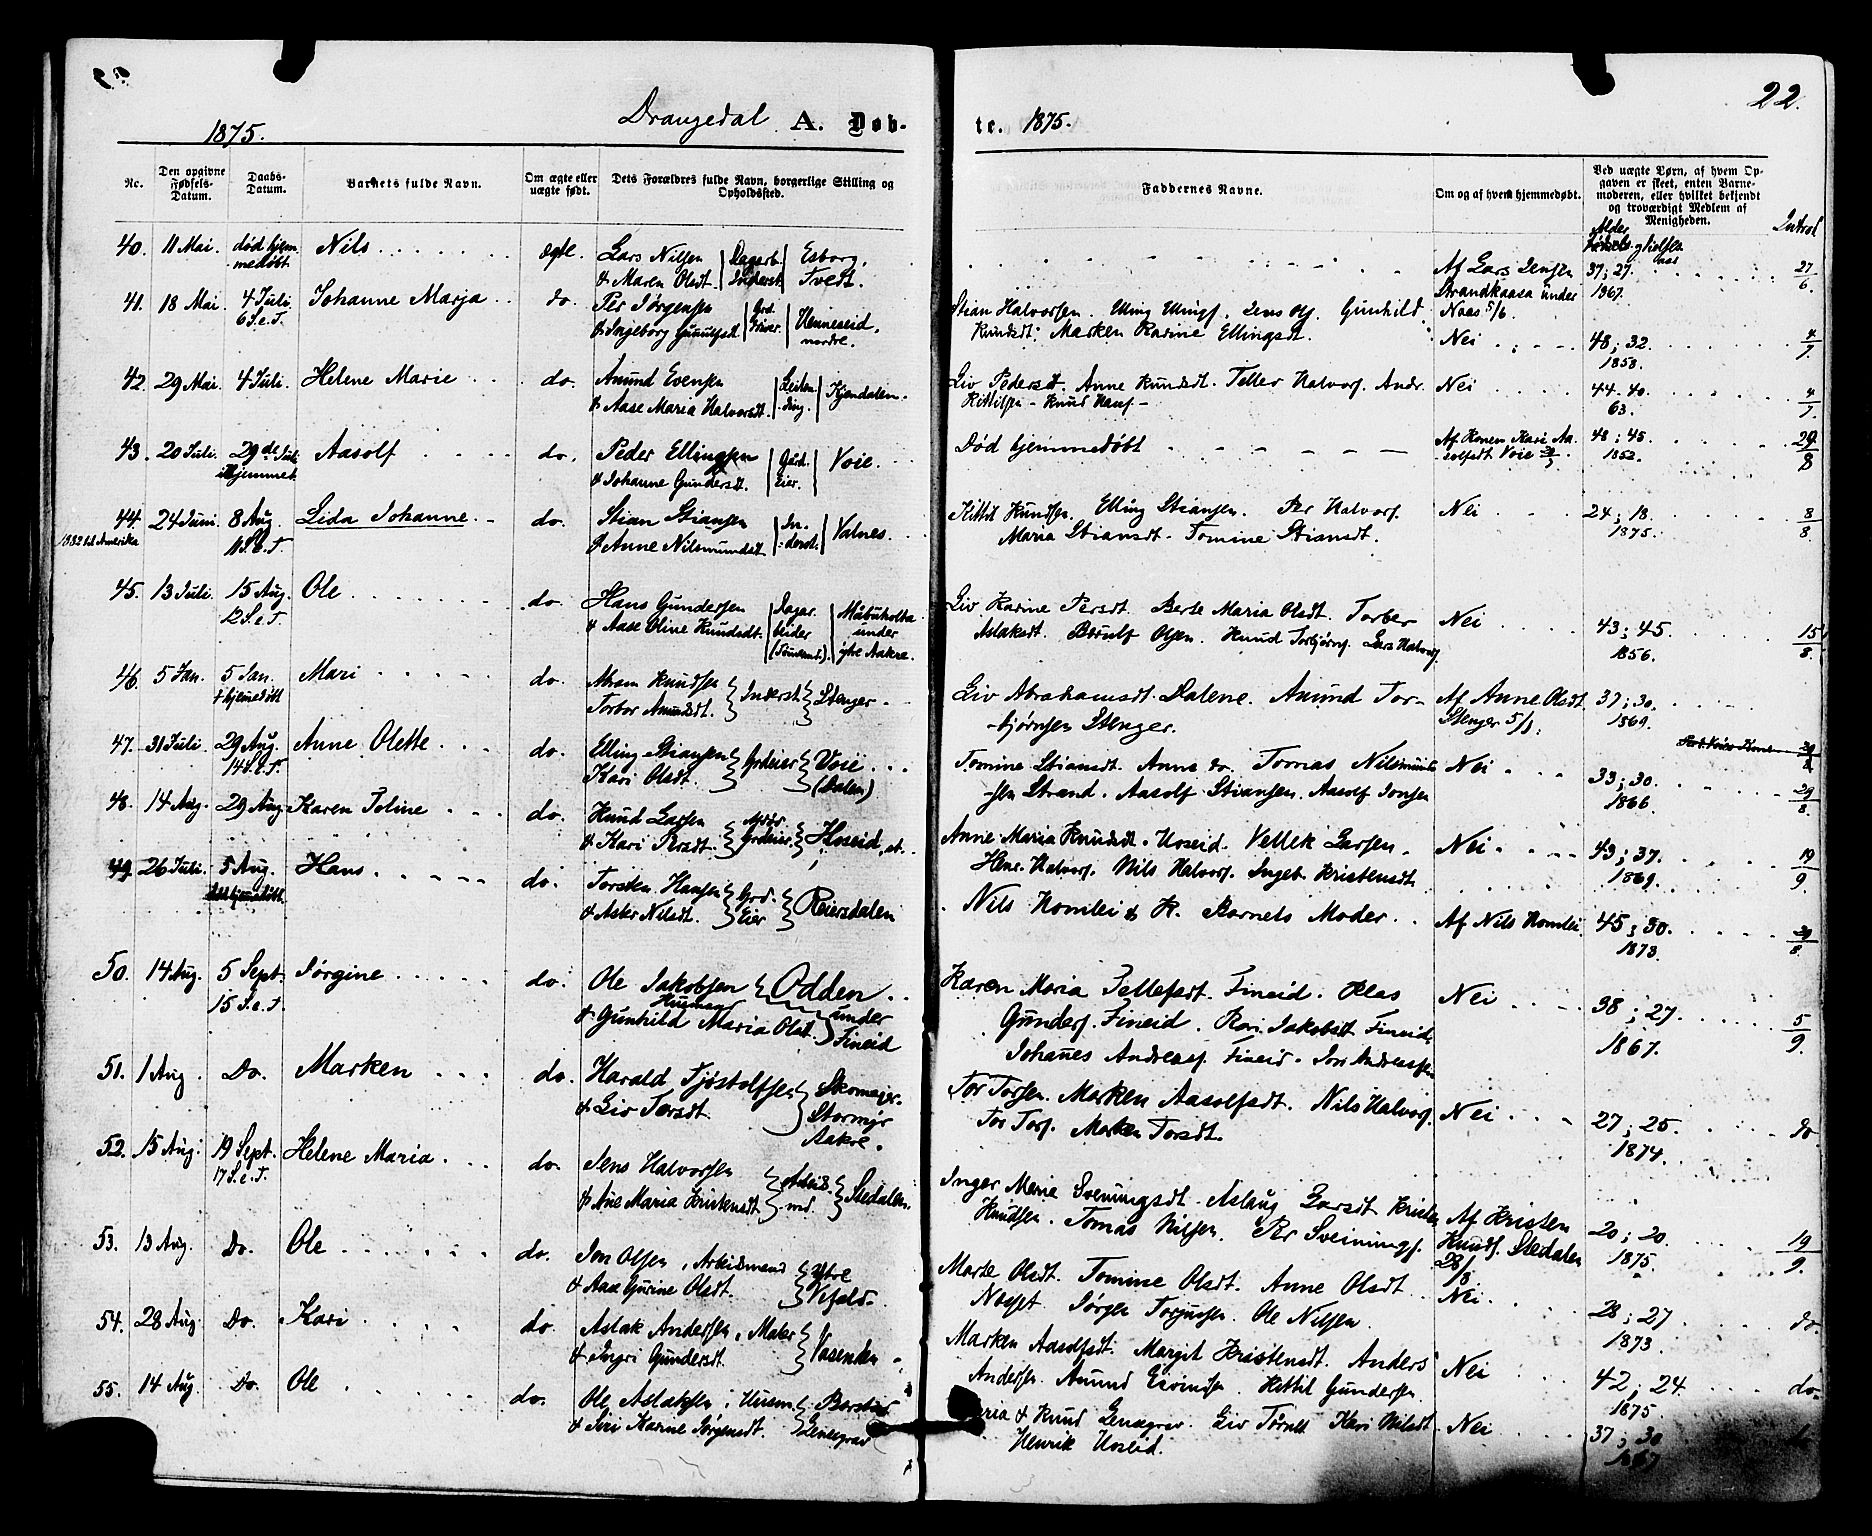 22.
Drangedal A. Døb-
te. 1875.
1875.
No. Den opgivne Fødsels-Datum. Daabs-Datum. Barnets fulde Navn. Om ægte eller uægte født. Dets Forældres fulde Navn, borgerlige Stilling og Opholdssted.
Faddernes Navne. Om og af hvem hjemmedøbt. Ved uægte Børn, af hvem Opgaven er skeet, enten Barnemoderen, eller hvilket bekjendt og troværdigt Medlem af Menigheden.
Alder
40. 11 Mai. død hjem- Nils ægte. Lars Nilsen Dagarb. Esborg, Af Lars Jensen 37; 27. 27/6
medøbt & Maren Olsdt. Inderst Tvedt. Strandkaasa under 1867.
41. 18 Mai 4 Juli Johanne Marja do. Per Jørgensen Grd. Henneseid, Stian Halvorsen. Gunhild Naas 5/6
6 S.e.T. & Ingeborg eier. nordre. Knudsdt. Marken Karine Ellingsdt. Nei 48; 32. 4/7
1858.
42. 29 Mai. 4 Juli. Helene Marie do. Anund Evensen Kjendalen. Liv Pedersdt. Anne Knudsdt. Tellev Halvors. Andr. Nei 44. 40. 4/7
& Aase Maria Halvorsdt. Kittilsen - Knud Hans - 63.
43. 20 Juli. 29de Juli Aasolf do. Peder Ellingsen Gård Voie. Død hjemmedøbt Af Konen Kari Aa- 48; 45. 29/8
hjemmed. & Johanne Gundersdt. Eier. solfsdt. Voie 1852.
44. 24 Juni 8 Aug. Lida Johanne do. Stian Stiansen In- Valnes. Kittil Knudsen. Elling Stiansen. Per Halvors. Nei 24; 18. 8/8
1882 til Amerika 11 S.e.T. & Anne Nilsmundsdt. derst. Maria Stiansdt. Tomine Stiansdt. 1875.
45. 13 Juli. 15 Aug. Ole do. Hans Gundersen Dagar- Liv Karine Persdt. Berte Maria Olsdt. Torber Nei 43; 45. 15/8
12 S.e.T. & Aase Oline Knudsdt. beider under Aslaksdt. Olsen. Knud Torbjørns. Lars Halvors. 1856.
ytre Aakre.
46. 5 Jan. 5 Jan. Mari do. Abram Knudsen Inderst. Stenger Liv Abrahamsdt. Dalene. Anund Tor- Af Anne Olsdt. 37; 30.
hjemedøbt Torbor Anundsdt. bjørnsen Stenger. Stenger 5/1. 1869.
47. 31 Juli 29 Aug. Anne Olette do. Elling Stiansen Grdeier Voie Tomine Stiansdt. Anne do. Tomas Nilsmund- Nei 33; 30.
14 S.e.T. Kari Olsdt. (Dalen) sen Strand. Aasolf Stiansen. Aasolf Jonsen 1866. 29/8
48. 14 Aug. 29 Aug. Karen Toline do. Knud Larsen Grdeier. Hoseid, Anne Maria Knudsdt. Hoseid. Vellek Larsen. Nei 43; 37. 19/9
& Kari Persdt. Henr. Halvors. Nils Halvors. Ingeb. Kristensdt. 1869.
49. 26 Juli. 5 Aug. Hans do. Torsten Hansen Grd. Reiersdalen Nils Homlei & K. Barnets Moder. Af Nils Homlei 45; 30.
& Nilsdt. Eier 1873.
50. 14 Aug. 5 Sept. Jørgine do. Ole Jakobsen Odden Karen Maria Tellefsdt. Fineid. Klas Nei 38; 27. 5/9.
15 S.e.T. Husmand under Gunders. Fineid. Kari Jakobsdt. Fineid. 1867.
& Gunhild Maria Olsdt. Fineid Johanes Andreas. Fineid. Andreassen
51. 1 Aug. Do. Marken do. Harald Tjøstolfsen Skomager. Tor Torsen. Marken Aasolfsdt. Nils Halvors. Nei 27; 25. do
& Liv Torsdt. Stormyr Tor Tors. Marken Torsdt. 1874.
Aakre.
52. 15 Aug. 19 Sept. Helene Maria do. Jens Halvorsen Arbeids- Stedalen. Inger Marie Sveningsdt. Aslaug Larsdt. Kristen Af Kristen 20; 20. 19/9.
17 S.e.T. & Ane Maria Kristensdt. md. Knudsen. Tomas Nilsen. Per Sveinings. Knuds. Stedalen 1875.
53. 13 Aug. Do. Ole do. Jon Olsen, Arbeidsmand Ytre Marte Olsdt. Tomine Olsdt. Anne Olsdt Nei 28; 27 do.
& Aase Gurine Olsdt. Vefald. Jørgen Torjussen. Ole Nilsen. 1873.
54. 28 Aug. Do. Kari do. Aslak Andersen, Maler Vasenden Marken Aasolfsdt. Margit Kristensdt. Anders Nei 42; 24 do.
& Ingri Gundersdt. Andersen. Anund Eivindsen. Kittil Gundersen 1875.
55. 14 Aug. Do. Ole do. Ole Aslaksen, Husm. & Knud Lenegrav. Liv Kari Nilsdt. Nei 37; 30
& Siri Karine Jørgensdt. Lenegrav Henrik Hoseid. 1867